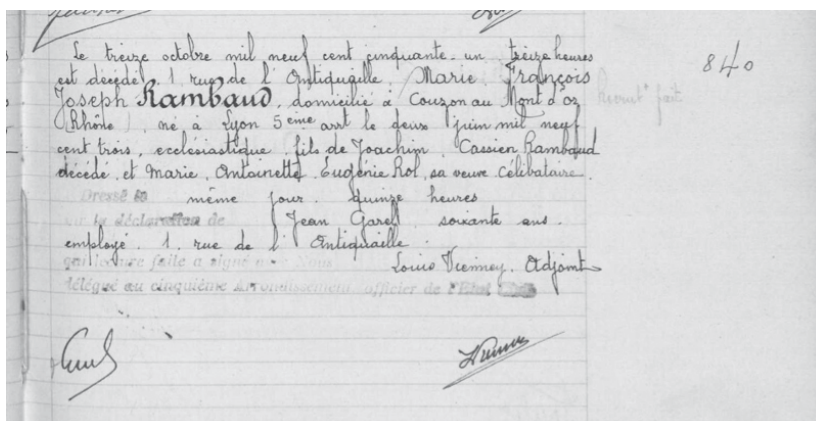 Le treize octobre mil neuf cent cinquante un treize heures
est décédé, 1, rue de l'Antiquaille, Marie François
Joseph Rambaud, domicilié à Couzon au Mont d'Or
(Rhône), né à Lyon 5ème arrt le deux juin mil neuf
cent trois, ecclésiastique fils de Joachim, Cassien Rambaud
décédé et Marie, Antoinette, Eugénie Rol, sa veuve. Célibataire.
Dressé le même jour. quinze heures
sur la déclaration de Jean Garel, soixante ans.
employé. 1, rue de l'Antiquaille.
qui lecture faite a signé avec Nous Louis Vienney, Adjoint
délégué au cinquième Arrondissement, officier de l'Etat Civil
840